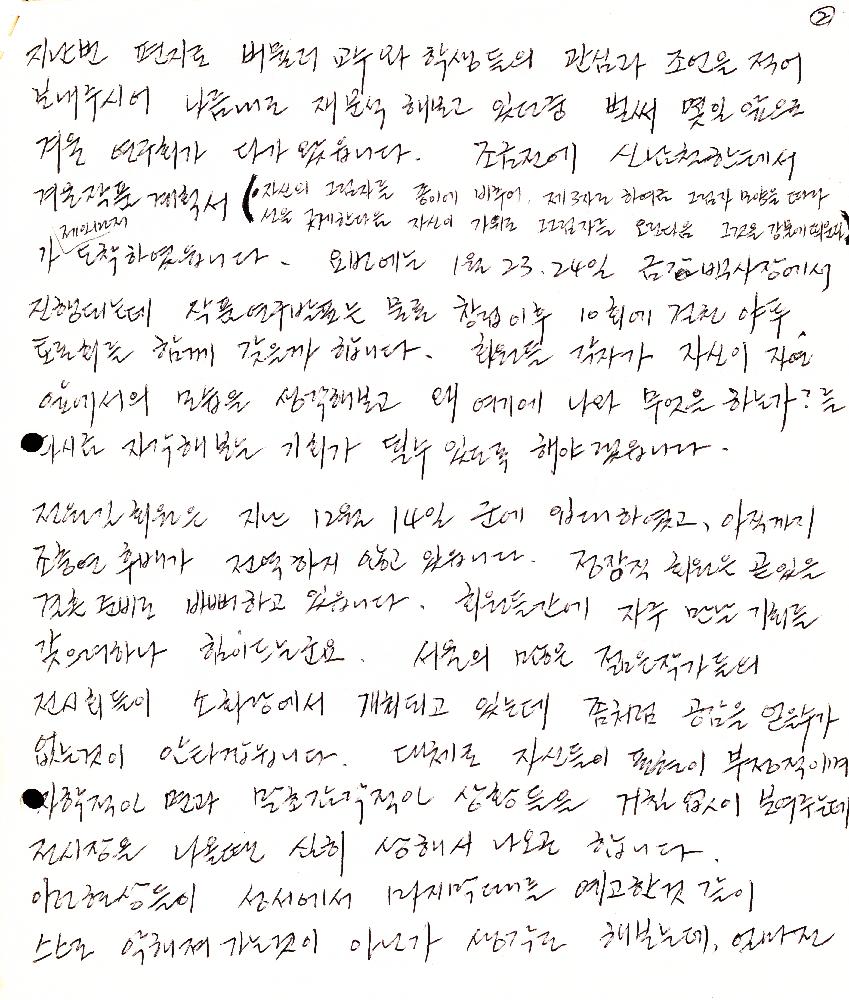 ②
지난번 편지로 버뮬러 교수와 학생들의 관심과 조언을 적어
보내주시어 나름대로 재분석 해보고 있던중 벌써 몇일 앞으로
겨울 연구회가 다가 왔읍니다. 조금전에 신난척한테서
겨울작품 계획서 (·자신의 그림자를 종이에 비추어, 제3자로 하여금 그림자 모양을 따라
선을 긋게한다음 자신이 가위로 그그림자를 오린다음 그것을 강물에 띄운다)
제의만저
가 도착하였읍니다. 요번에는 1월 23.24일 금강백사장에서
진행되는데 작품연구발표는 물론 창립이후 10회에 걸친 야투
토론회를 함께 갖을까 합니다. 회원들 각자가 자신이 자연
앞에서의 모습을 생각해보고 왜 여기에 나와 무엇을 하는가? 를
다시금 자각해보는 기회가 될수 있도록 해야겠읍니다.
전원길 회원은 지난 12월 14일 군에 입대하였고, 아직까지
조충연 후배가 전역하지 않고 있읍니다. 정장직 회원은 곧있을
결혼 준비로 바빠하고 있읍니다. 회원들간에 자주 만날 기회를
갖으려하나 힘이드는군요. 서울의 많은 젊은작가들의
전시회들이 소화랑에서 개최되고 있는데 좀처럼 공감을 얻을수가
없는것이 안타깝읍니다. 대체로 자신들의 표현이 부정적이며
자학적인 면과 말초감각적인 상황들을 거침 없이 보여주는데
전시장을 나올때면 심히 상해서 나오곤 합니다.
이런현상들이 성서에서 마지막때를 예고한것 같이
스스로 악해져 가는것이 아닌가 생각도 해보는데, 얼마전